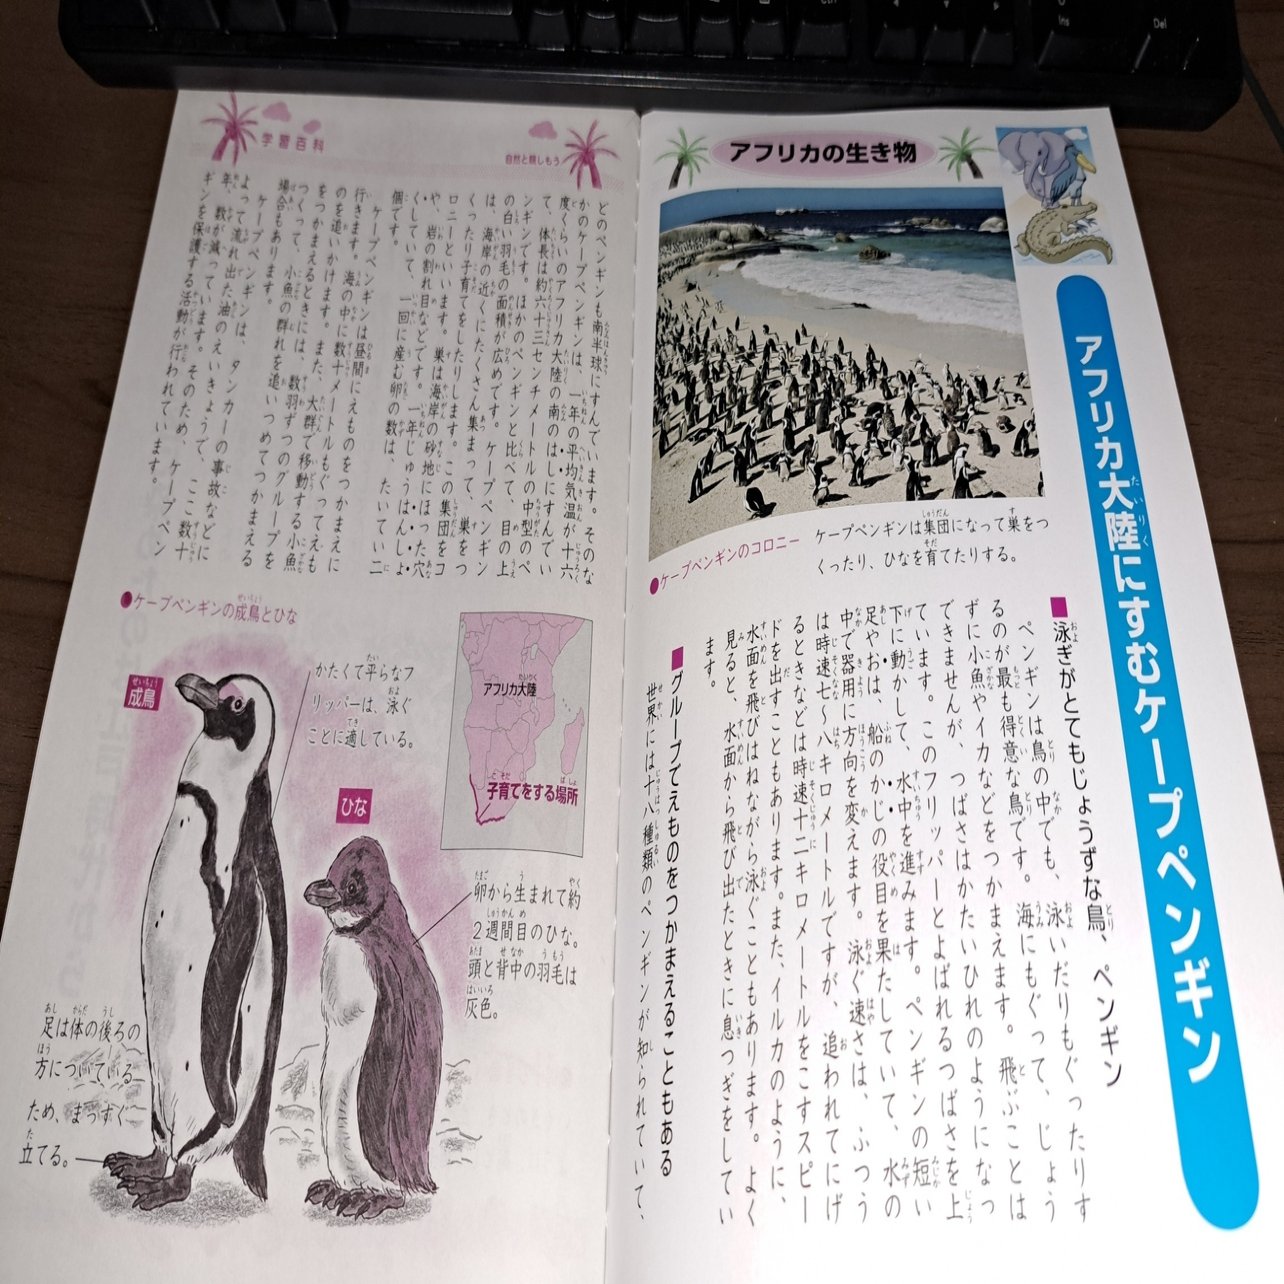 アフリカの生き物
アフリカ大陸にすむケープペンギン
●ケープペンギンのコロニー
ケープペンギンは集団になって巣をつ
くったり、ひなを育てたりする。
■泳ぎがとてもじょうずな鳥、ペンギン
ペンギンは鳥の中でも、泳いだりもぐったりす
るのが最も得意な鳥です。海にもぐって、じょう
ずに小魚やイカなどをつかまえます。飛ぶことは
できませんが、つばさはかたいひれのようになっ
ています。このフリッパーとよばれるつばさを上
下に動かして、水中を進みます。ペンギンの短い
足やおは、船のかじの役目を果たしていて、水の
中で器用に方向を変えます。泳ぐ速さは、ふつう
は時速七〜八キロメートルですが、追われてにげ
るときなどは時速十二キロメートルをこすスピー
ドを出すこともあります。また、イルカのように、
水面を飛びはねながら泳ぐこともあります。よく
見ると、水面から飛び出たときに息つぎをしてい
ます。
■グループでえものをつかまえることもある
世界には十八種類のペンギンが知られていて、
学習百科
自然と親しもう
どのペンギンも南半球にすんでいます。そのな
かのケープペンギンは、一年の平均気温が十六
度くらいのアフリカ大陸の南のはしにすんでい
て、体長は約六十三センチメートルの中型のペ
ンギンです。ほかのペンギンと比べて、目の上
の白い羽毛の面積が広めです。ケープペンギン
は、海岸の近くにたくさん集まって、巣をつ
くったり子育てをしたりします。この集団をコ
ロニーといいます。巣は海岸の砂地にほった穴
や、岩の割れ目などです。一年じゅうはんしょ
くしていて、一回に産む卵の数は、たいてい二
個です。
ケープペンギンは昼間にえものをつかまえに
行きます。海の中に数十メートルももぐってえも
のを追いかけます。また、大群で移動する小魚
をつかまえるときには、数羽ずつのグループを
つくって、小魚の群れを追いつめてつかまえる
場合もあります。
ケープペンギンは、タンカーの事故などに
よって流れ出た油のえいきょうで、ここ数十
年、数が減っています。そのため、ケープペン
ギンを保護する活動が行われています。
●ケープペンギンの成鳥とひな
成鳥
かたくて平らなフ
リッパーは、泳ぐ
ことに適している。
アフリカ大陸
子育てをする場所
ひな
卵から生まれて約
2週間目のひな。
頭と背中の羽毛は
灰色。
足は体の後ろの
方についている
ため、まっすぐ
立てる。
Ins
Del